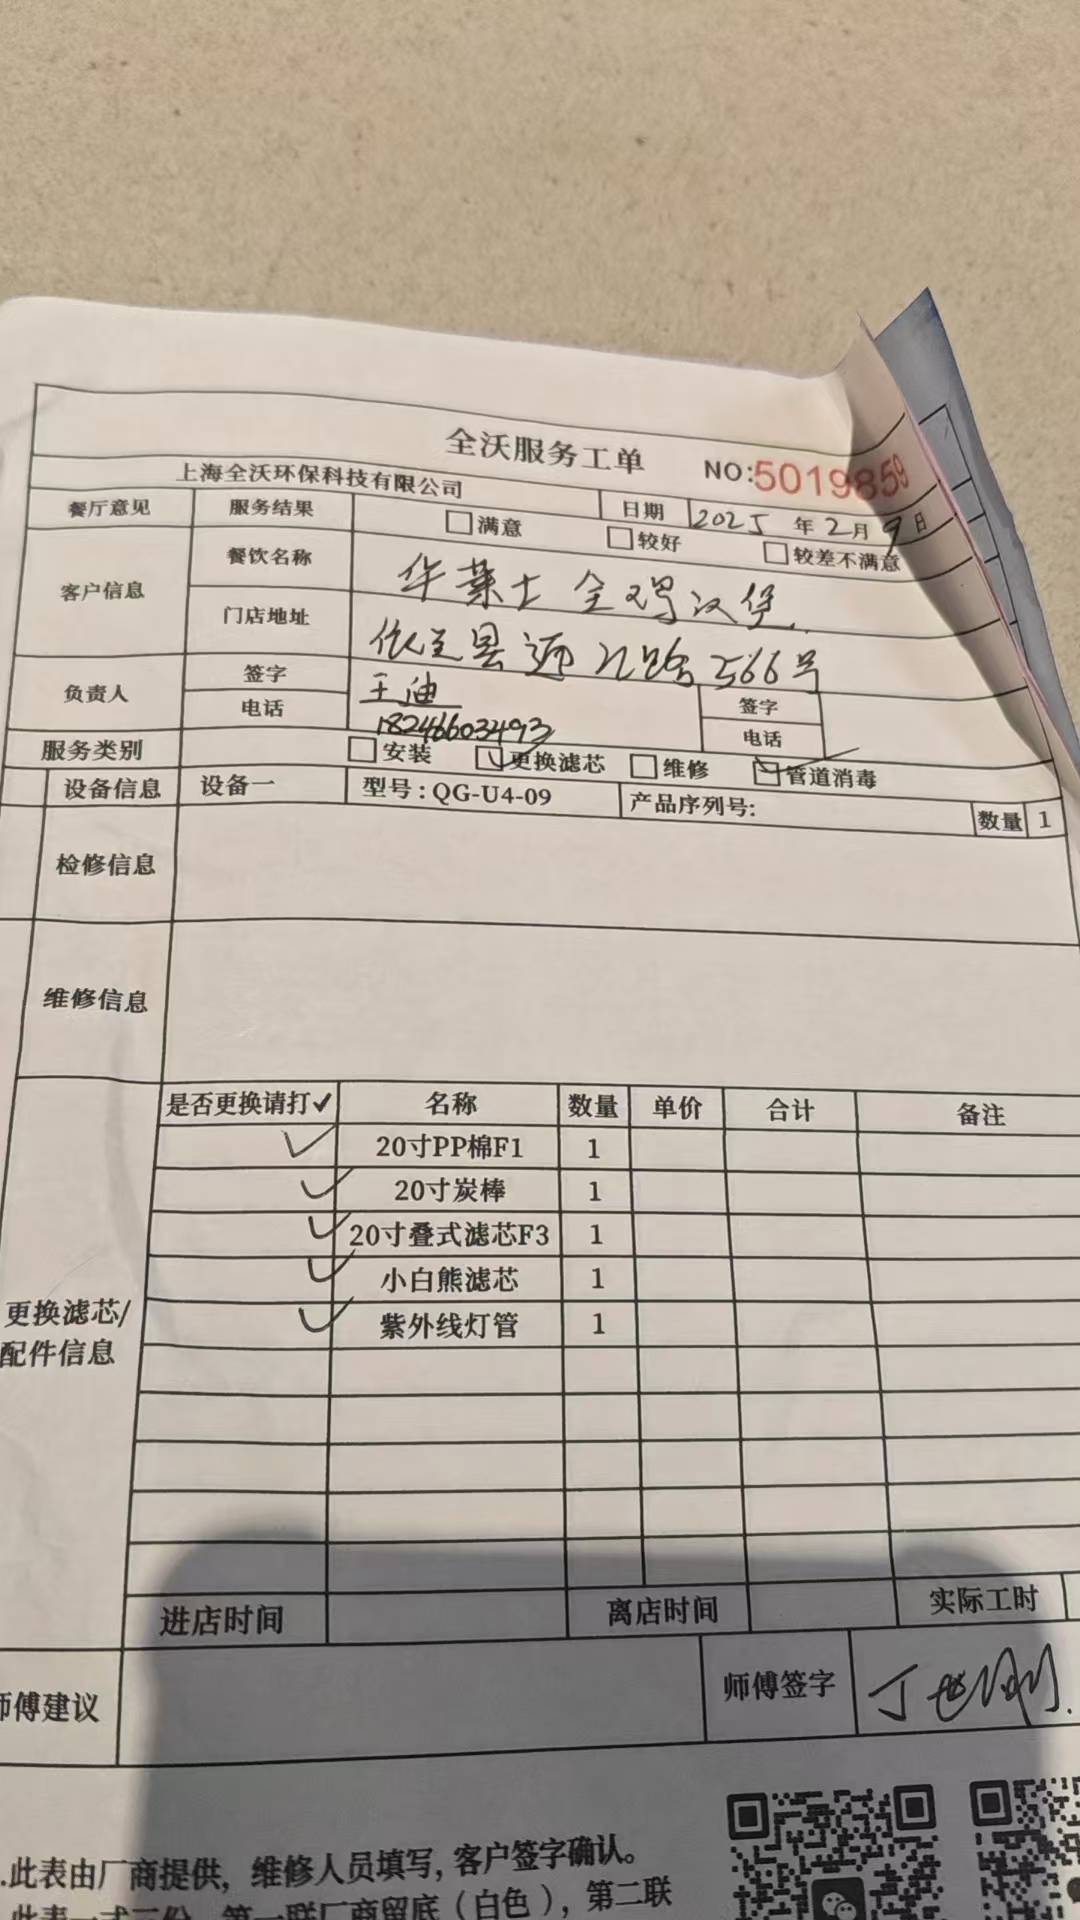 全沃服务工单
NO:5019859
上海全沃环保科技有限公司
日期 2025 年 2 月 9 日
餐厅意见 服务结果 满意 较好 较差不满意
客户信息 餐饮名称 华莱士全鸡汉堡
门店地址 依兰县通江路566号
负责人 签字 王迪 签字
电话 18246603493 电话
服务类别 安装 更换滤芯 维修 管道消毒
设备信息 设备一 型号:QG-U4-09 产品序列号: 数量 1
检修信息
维修信息
是否更换请打✓ 名称 数量 单价 合计 备注
✓ 20寸PP棉F1 1
✓ 20寸炭棒 1
✓ 20寸叠式滤芯F3 1
✓ 小白熊滤芯 1
✓ 紫外线灯管 1
更换滤芯/
配件信息
进店时间 离店时间 实际工时
师傅建议 师傅签字
.此表由厂商提供，维修人员填写，客户签字确认。
此表一式三份，第一联厂商留底（白色），第二联